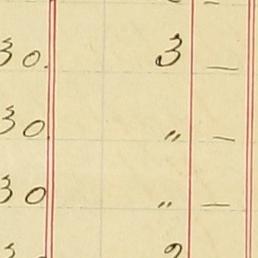 30. 3 —
30. " —
30 " —